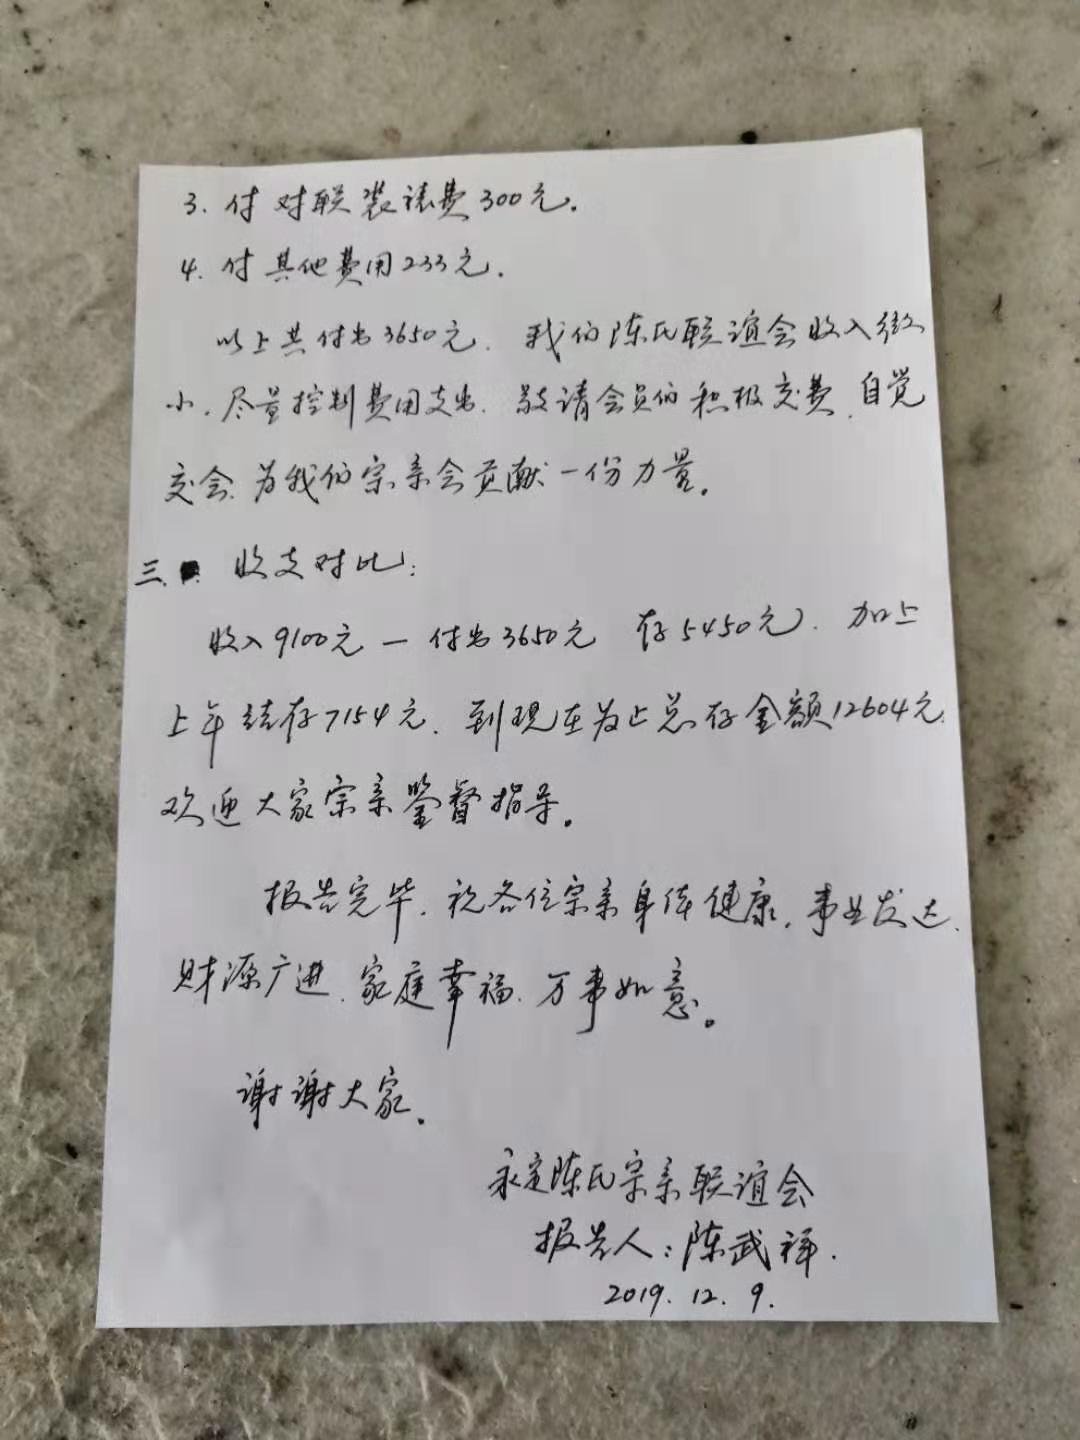 3. 付对联装裱费300元。
4. 付其他费用233元.
以上共付出3650元. 我们陈氏联谊会收入微
小. 尽量控制费用支出. 敬请会员们积极交费. 自觉
交会. 为我们宗亲会贡献一份力量。
三. 收支对比:
收入9100元—付出3650元 存5450元. 加上
上年结存7154元. 到现在为止总存金额12604元.
欢迎大家宗亲鉴督指导。
报告完毕. 祝各位宗亲身体健康. 事业发达.
财源广进. 家庭幸福. 万事如意。
谢谢大家.
永定陈氏宗亲联谊会
报告人: 陈武祥.
2019. 12. 9.